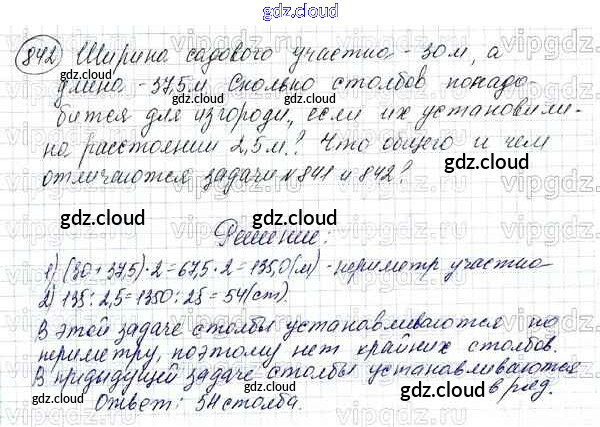 gdz.cloud
842 Ширина садового участка - 30 м, а
длина - 37,5 м. Сколько столбов понадо-
бится для изгороди, если их установили
на расстоянии 2,5 м? Что общего и чем
отличаются задачи №841 и 842?
gdz.cloud gdz.cloud
Решение:
1) (30+37,5)·2=67,5·2=135,0(м) - периметр участка
2) 135:2,5=1350:25=54(ст).
В этой задаче столбы устанавливаются по
периметру, поэтому нет крайних столбов.
В предидущей задаче столбы устанавливаются
в ряд.
Ответ: 54 столба.